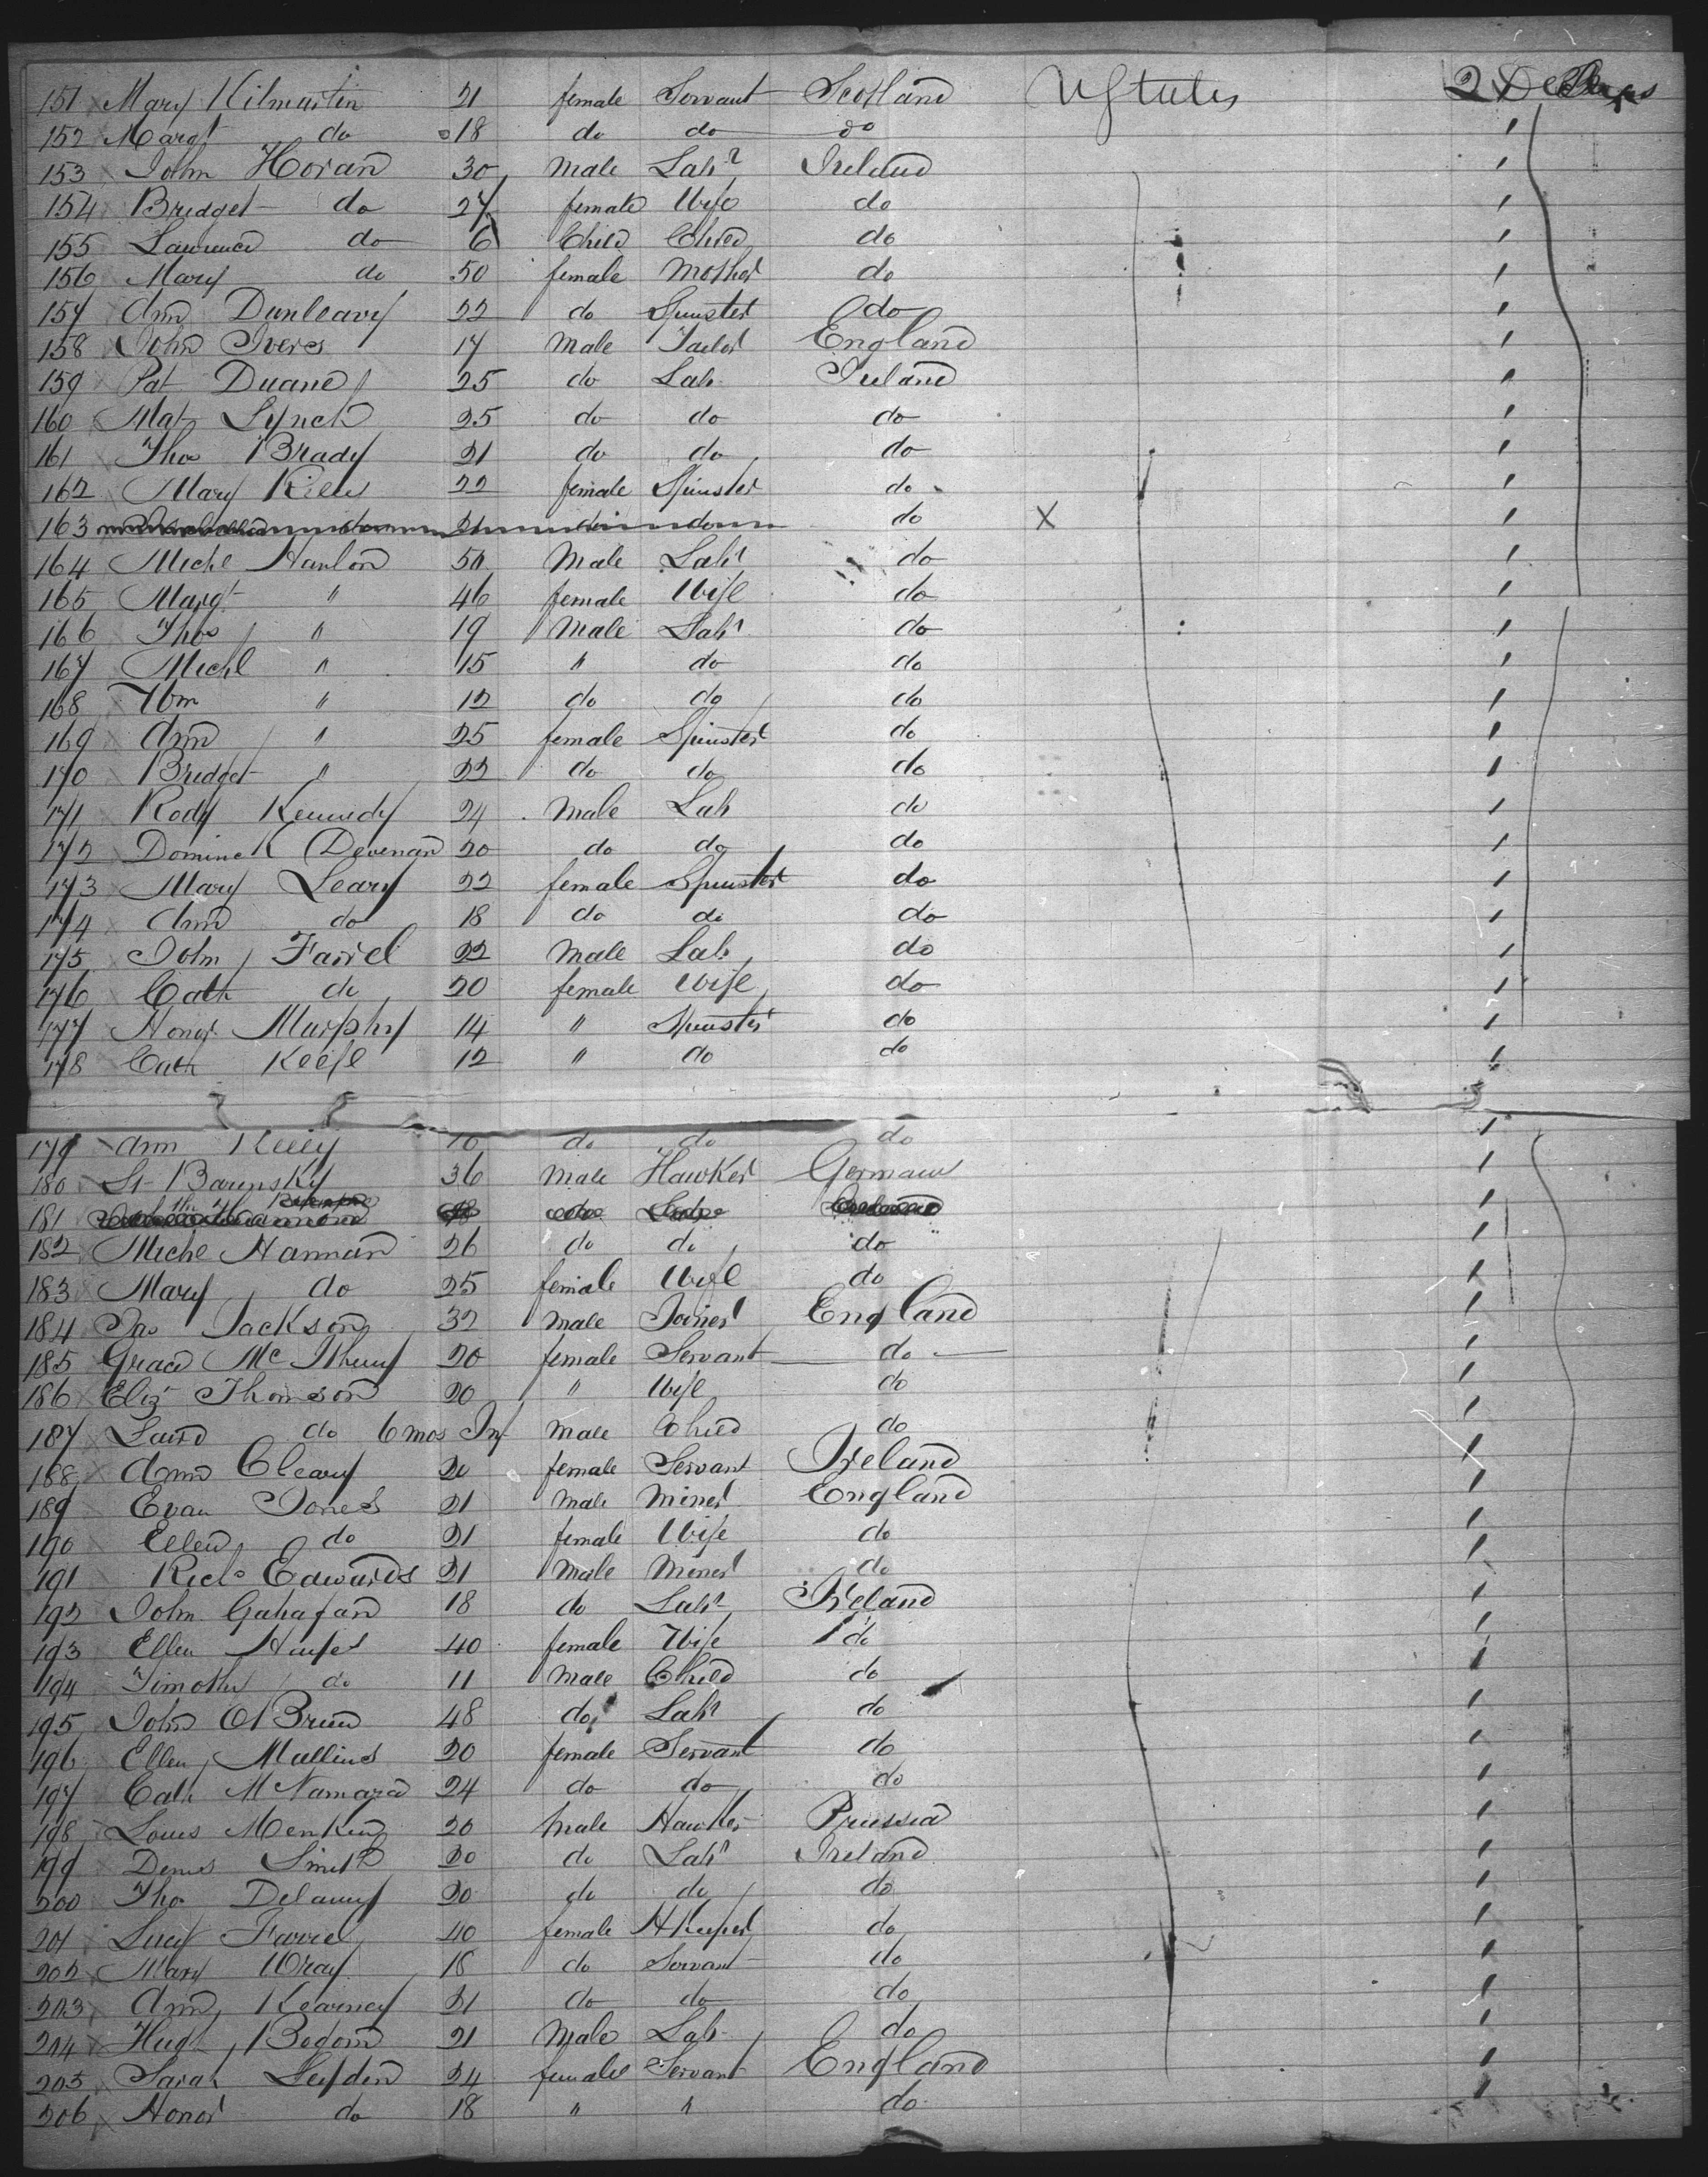 151 Mary Kilmartin 21 female Servant Scotland U States 2 Deck
152 Margt do 18 do do do
153 John Horan 30 male Labr Ireland
154 Bridget do 27 female Wife do
155 Lawrence do 6 Child Child do
156 Mary do 50 female Mother do
157 Ann Dunleavy 22 do Spinster do
158 John Iveres 17 Male Tailor England
159 Pat Duane 25 do Lab Ireland
160 Mat Lynch 25 do do do
161 Thos Brady 21 do do do
162 Mary 22 female Spinster do
163 do 21 do do do X
164 Michl Hanlon 50 Male Labr do
165 Margt " 46 female Wife do
166 Thos " 19 Male Labr do
167 Michl " 15 " do do
168 Wm " 12 do do do
169 Ann " 25 female Spinster do
170 Bridget " 22 do do do
171 Rody Kennedy 24 male Lab do
172 Dominek Devenan 20 do do do
173 Mary Leary 22 female Spinster do
174 Ann do 18 do do do
175 John Farrel 22 Male Lab do
176 Cath do 20 female Wife do
177 Honor Murphy 14 " Spinster do
178 Cath Keefe 12 " do do
179 Ann Kelly 10 do do do
180 St Barensky 36 Male Hawker German
181
182 Michl Hannan 26 do do do
183 Mary do 25 female Wife do
184 Jas Jackson 32 male Joiner England
185 Grace Mc 20 female Servant do
186 Eliz Thomson 20 " Wife do
187 Laird do 6 mos Inf male Child do
188 Ann Cleary 20 female Servant Ireland
189 Evan Jones 21 male Miner England
190 Ellen do 21 female Wife do
191 Richd Edwards 21 male Miner do
192 John Gahagan 18 do Labr Ireland
193 Ellen Hayes 40 female Wife do
194 Timothy do 11 male Child do
195 John O'Brien 48 do Labr do
196 Ellen Mullins 20 female Servant do
197 Cath McNamara 24 do do do
198 Louis Menking 20 male Hawker Prussia
199 Denis Smith 20 do Labr Ireland
200 Thos Delaney 20 do do do
201 Lucy Farrel 40 female HKeeper do
202 Mary Wray 18 do Servant do
203 Ann Kearney 21 do do do
204 Hugh Bodom 21 Male Lab do
205 Sarah Leyden 24 female Servant England
206 Honor do 18 " " do